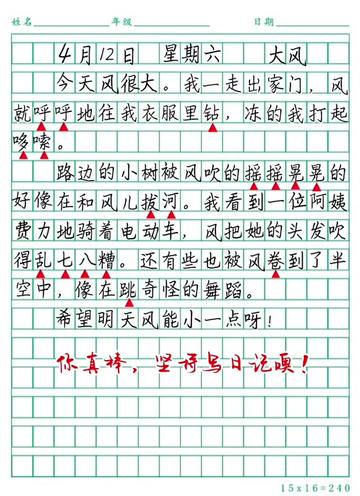 姓名 年级 日期
4月12日 星期六 大风
今天风很大。我一走出家门，风
就呼呼地往我衣服里钻，冻的我打起
哆嗦。
路边的小树被风吹的摇摇晃晃的
好像在和风儿拔河。我看到一位阿姨
费力地骑着电动车，风把她的头发吹
得乱七八糟。还有些也被风卷到了半
空中，像在跳奇怪的舞蹈。
希望明天风能小一点呀！
你真棒，坚持写日记噢！
15x16=240